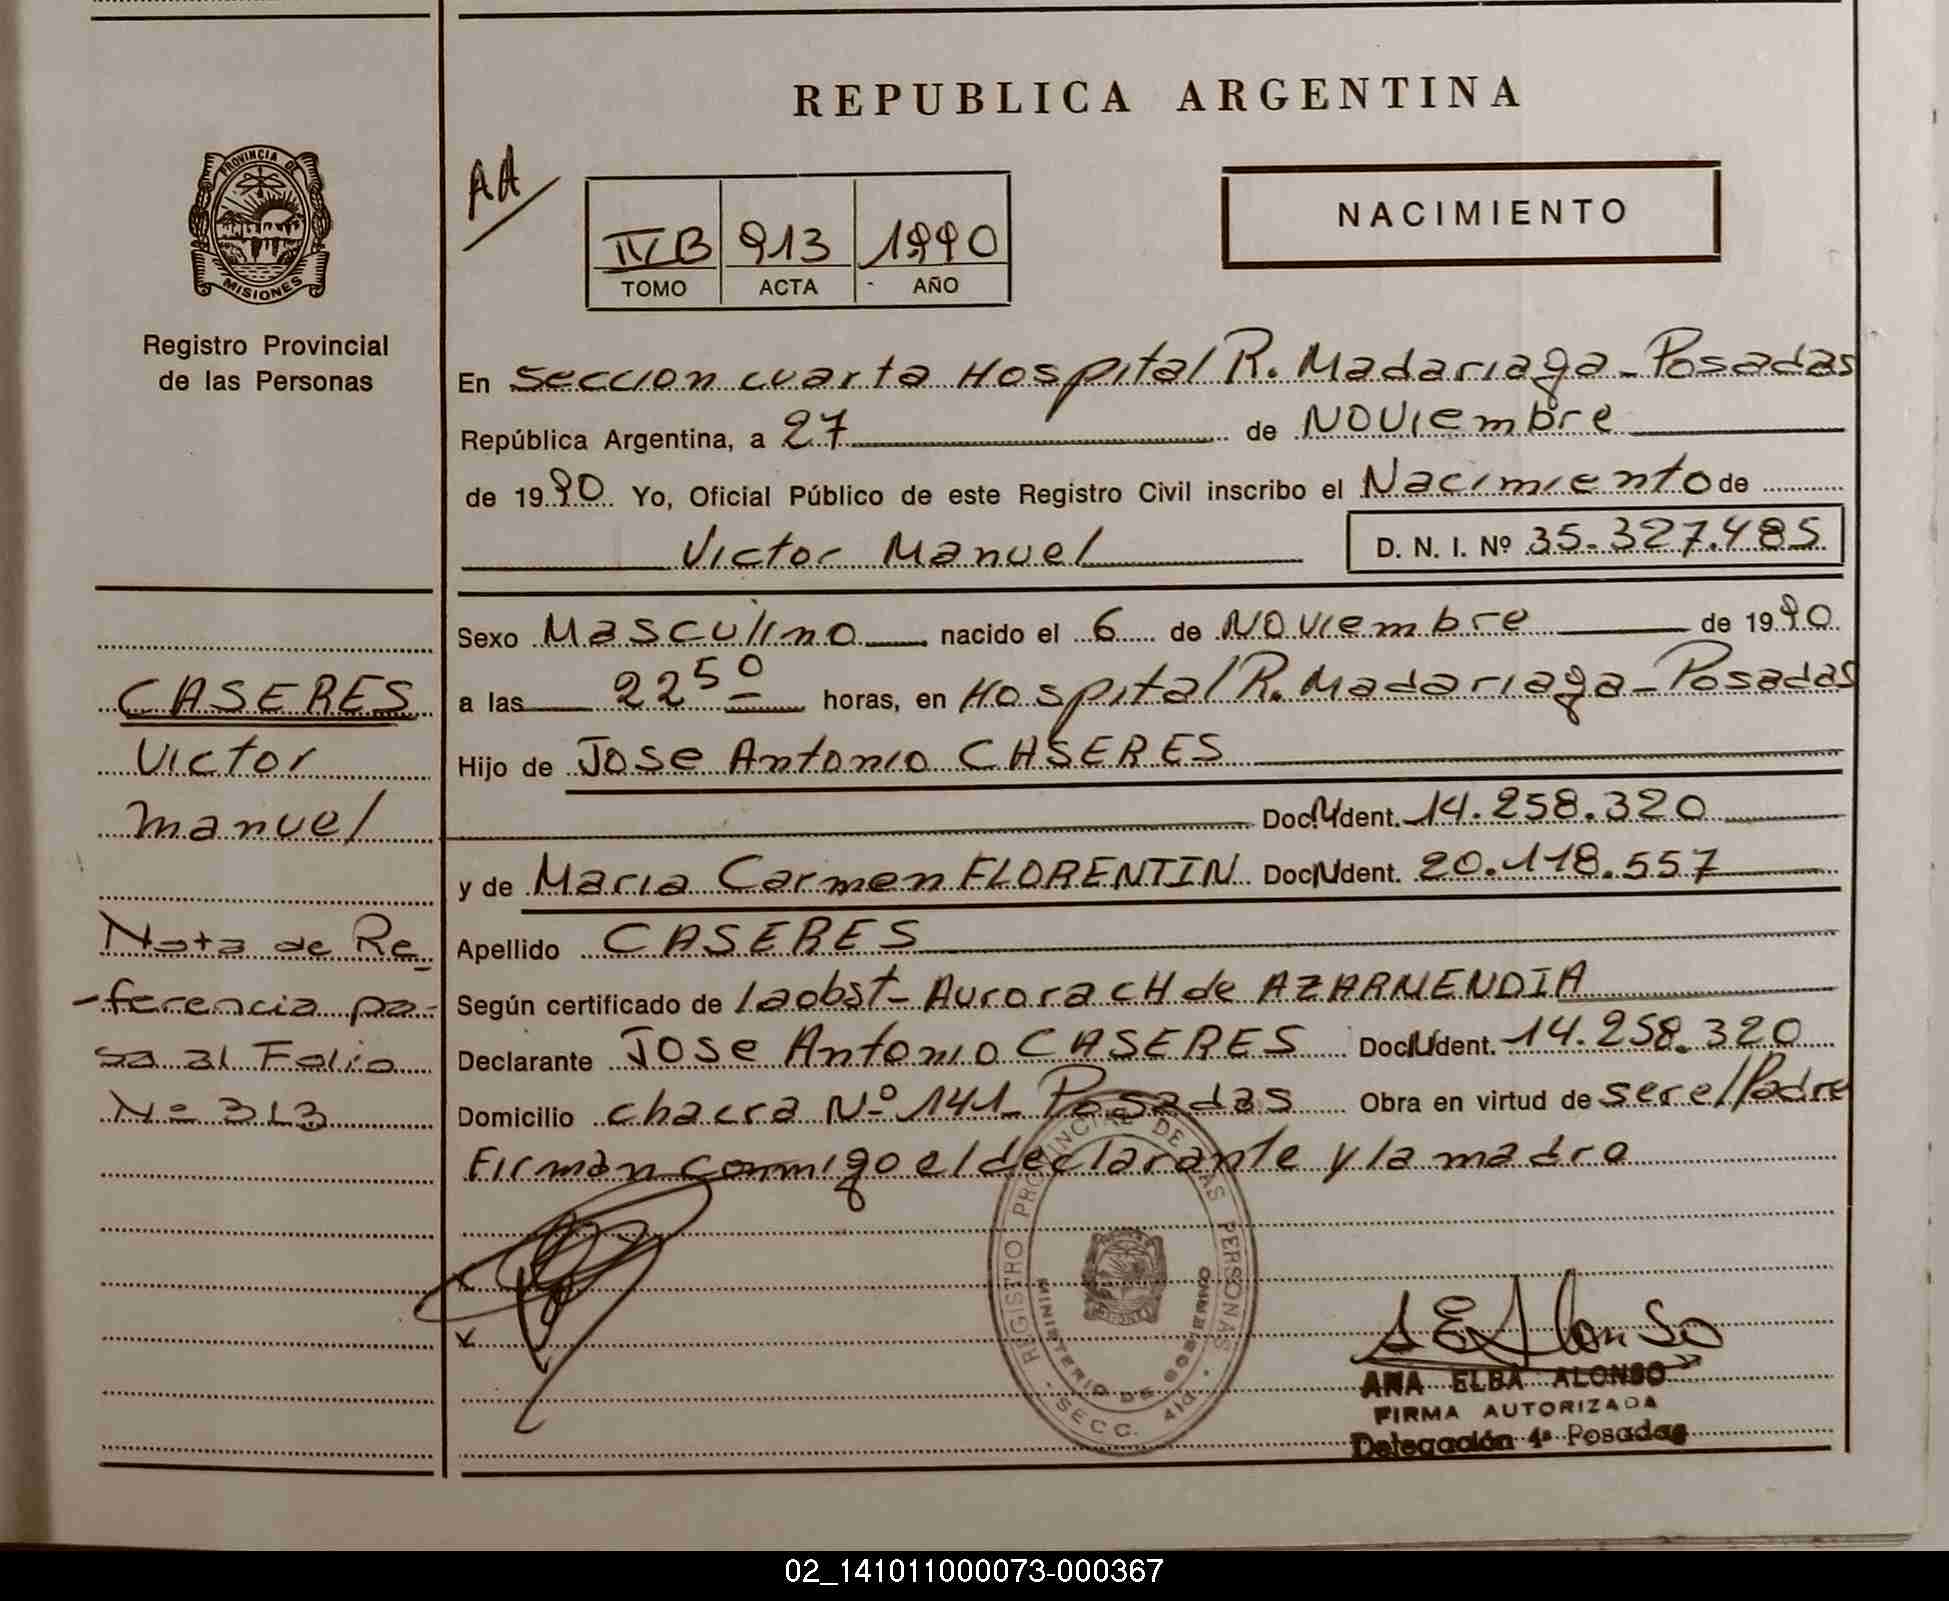 REPUBLICA ARGENTINA
PROVINCIA DE
MISIONES
Registro Provincial
de las Personas
AA
NACIMIENTO
IV B 913 1990
TOMO ACTA AÑO
En Seccion cuarta Hospital R. Madariaga - Posadas
República Argentina, a 27 de Noviembre
de 1990 Yo, Oficial Público de este Registro Civil inscribo el Nacimiento de
Victor Manuel D. N. I. Nº 35.327.485
Sexo Masculino nacido el 6 de Noviembre de 1990
a las 22 50 horas, en Hospital R. Madariaga - Posadas
Hijo de Jose Antonio CASERES
Doc. Ident. 14.258.320
y de Maria Carmen FLORENTIN Doc. Ident. 20.118.557
Apellido CASERES
Según certificado de la obst- Aurora CH de AZARMENDIA
Declarante Jose Antonio CASERES Doc. Ident. 14.258.320
Domicilio chacra Nº 141- Posadas Obra en virtud de ser el Padre
Firman conmigo el declarante y la madre
CASERES
Victor
Manuel
Nota de Re-
-ferencia pa-
sa al Folio
Nº 313
REGISTRO PROVINCIAL DE LAS PERSONAS
MINISTERIO DE GOBIERNO
SECC. 4ta
A E Alonso
ANA ELBA ALONSO
FIRMA AUTORIZADA
Delegación 4ª Posadas
02_141011000073-000367